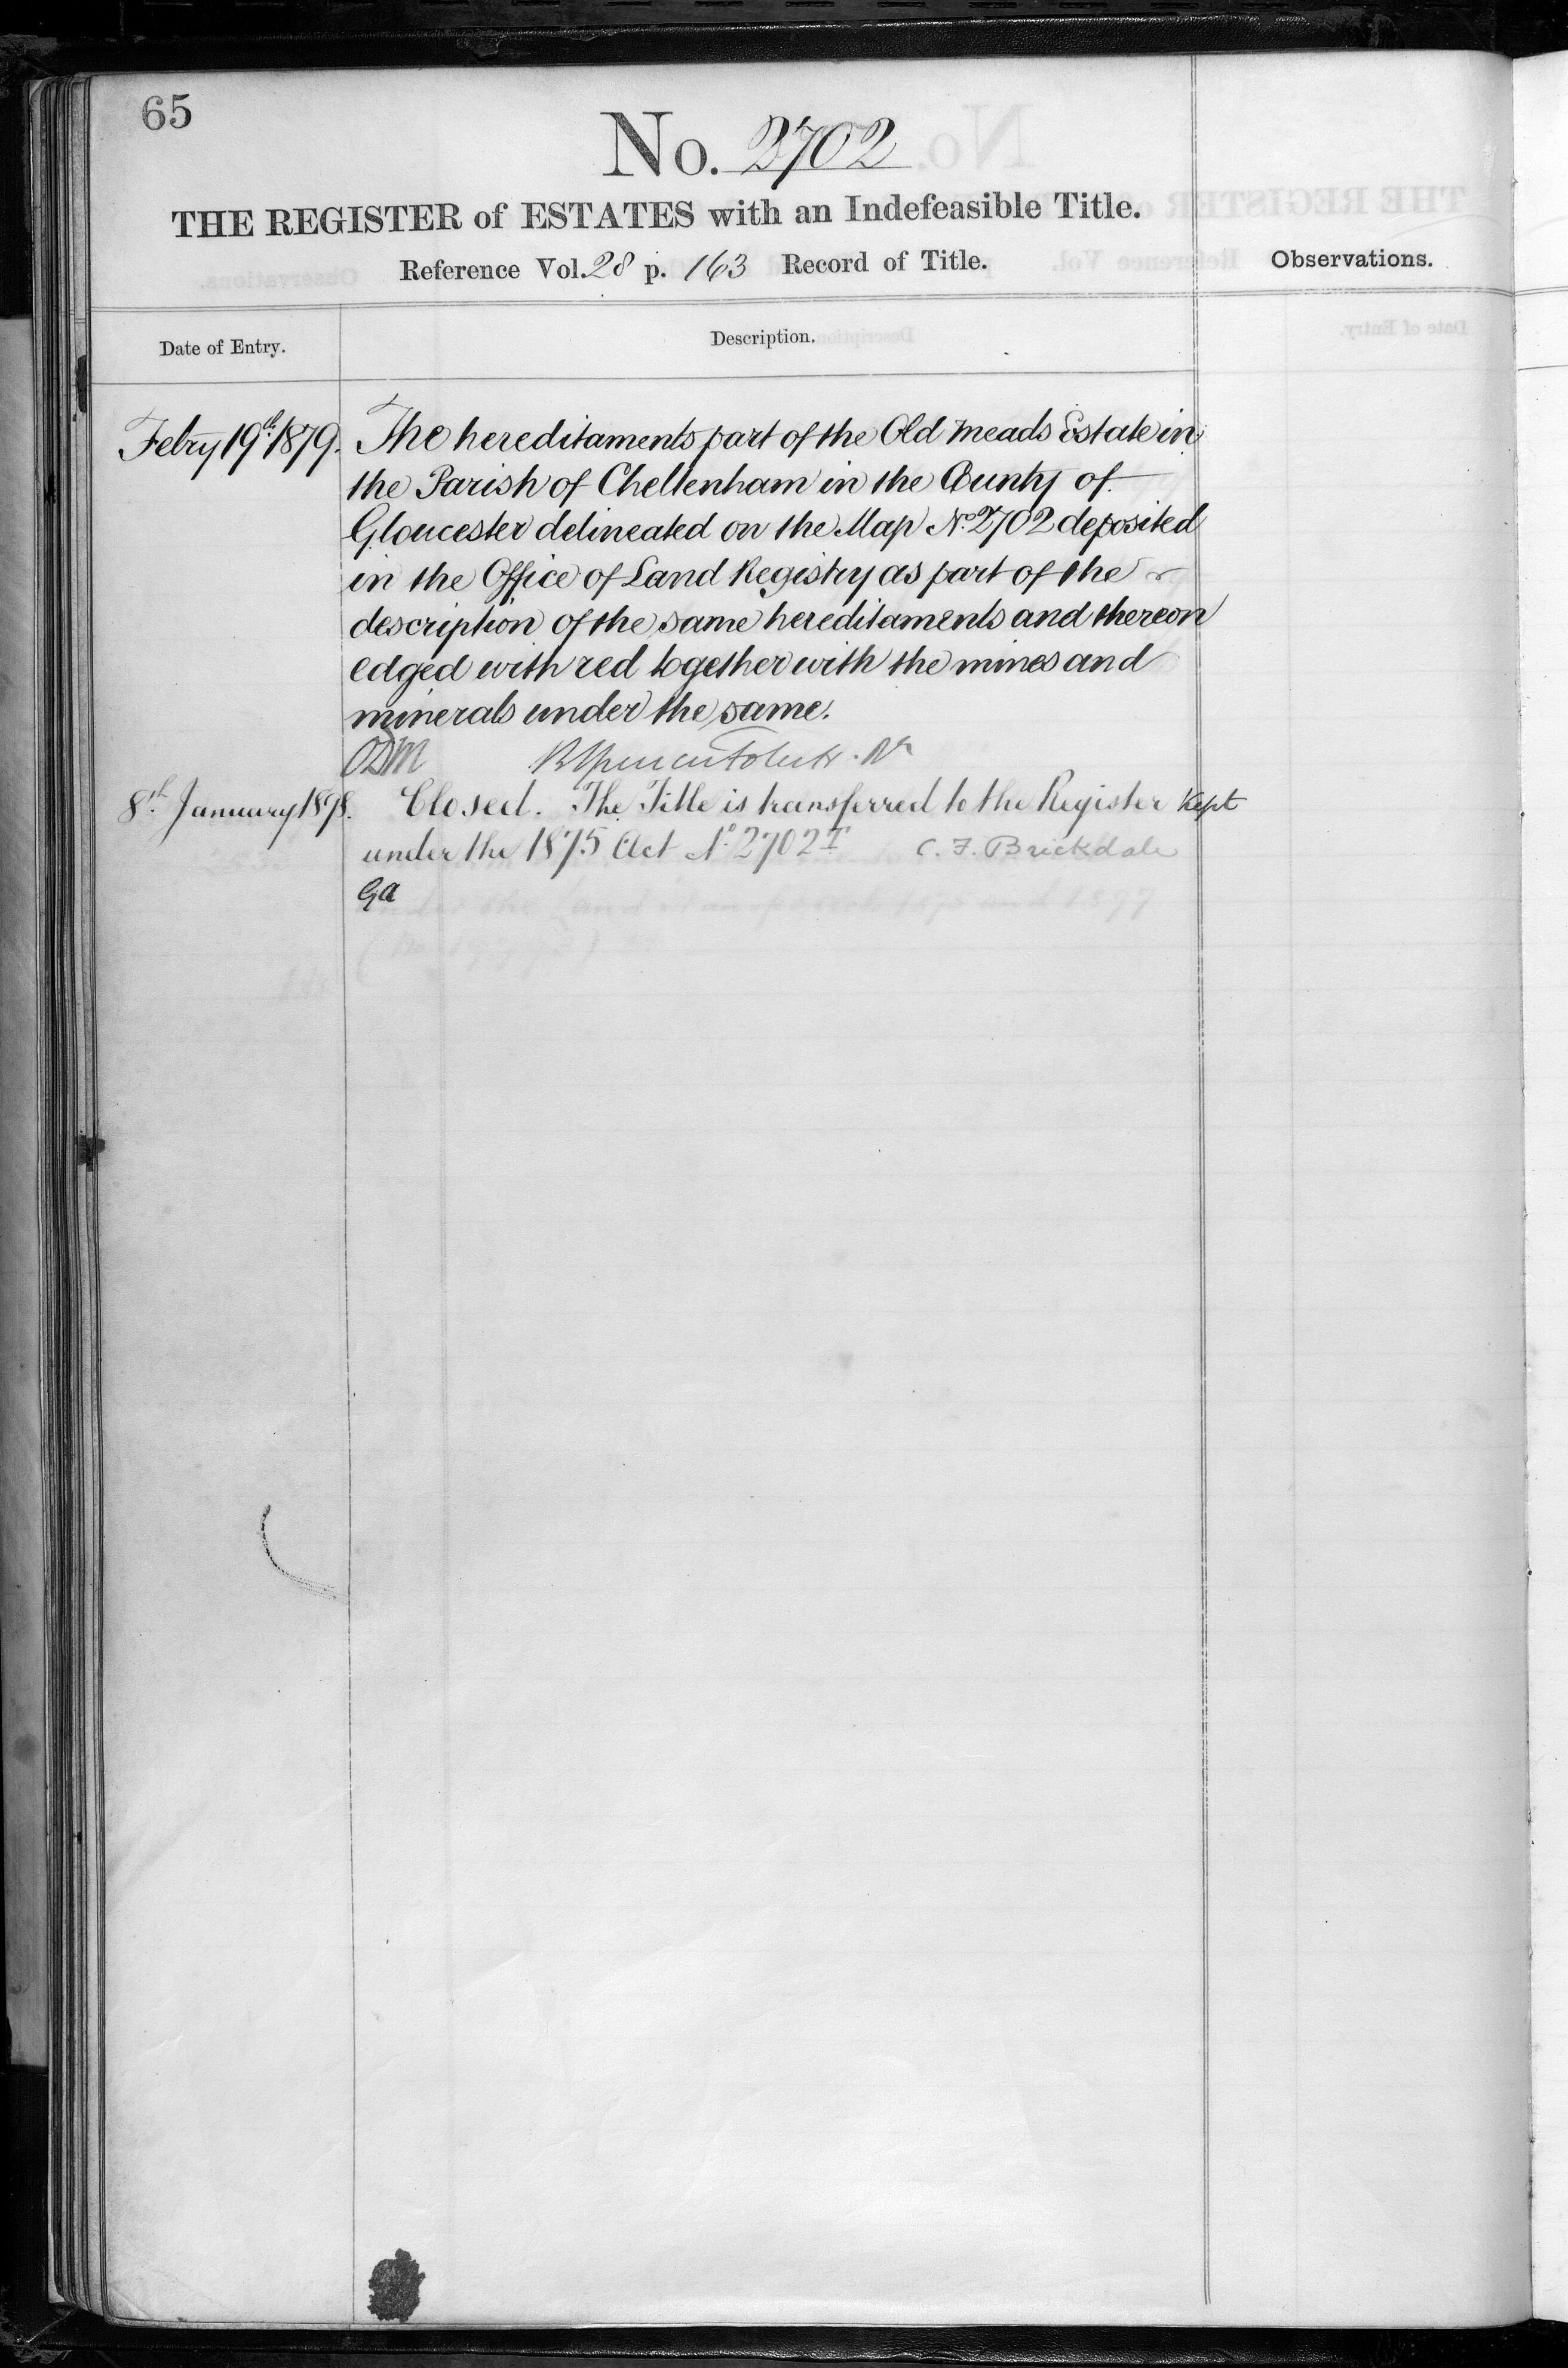 65
No. 2702
THE REGISTER of ESTATES with an Indefeasible Title.
Reference Vol. 28 p. 163 Record of Title.
Observations.
Date of Entry.
Description.
Febry 19th 1879.
The hereditaments part of the Old Meads Estate in
the Parish of Cheltenham in the County of
Gloucester delineated on the Map No. 2702 deposited
in the Office of Land Registry as part of the
description of the same hereditaments and thereon
edged with red together with the mines and
minerals under the same.
8th January 1898.
Closed. The Title is transferred to the Register Kept
under the 1875 Act No. 2702T C. F. Brickdale
GA